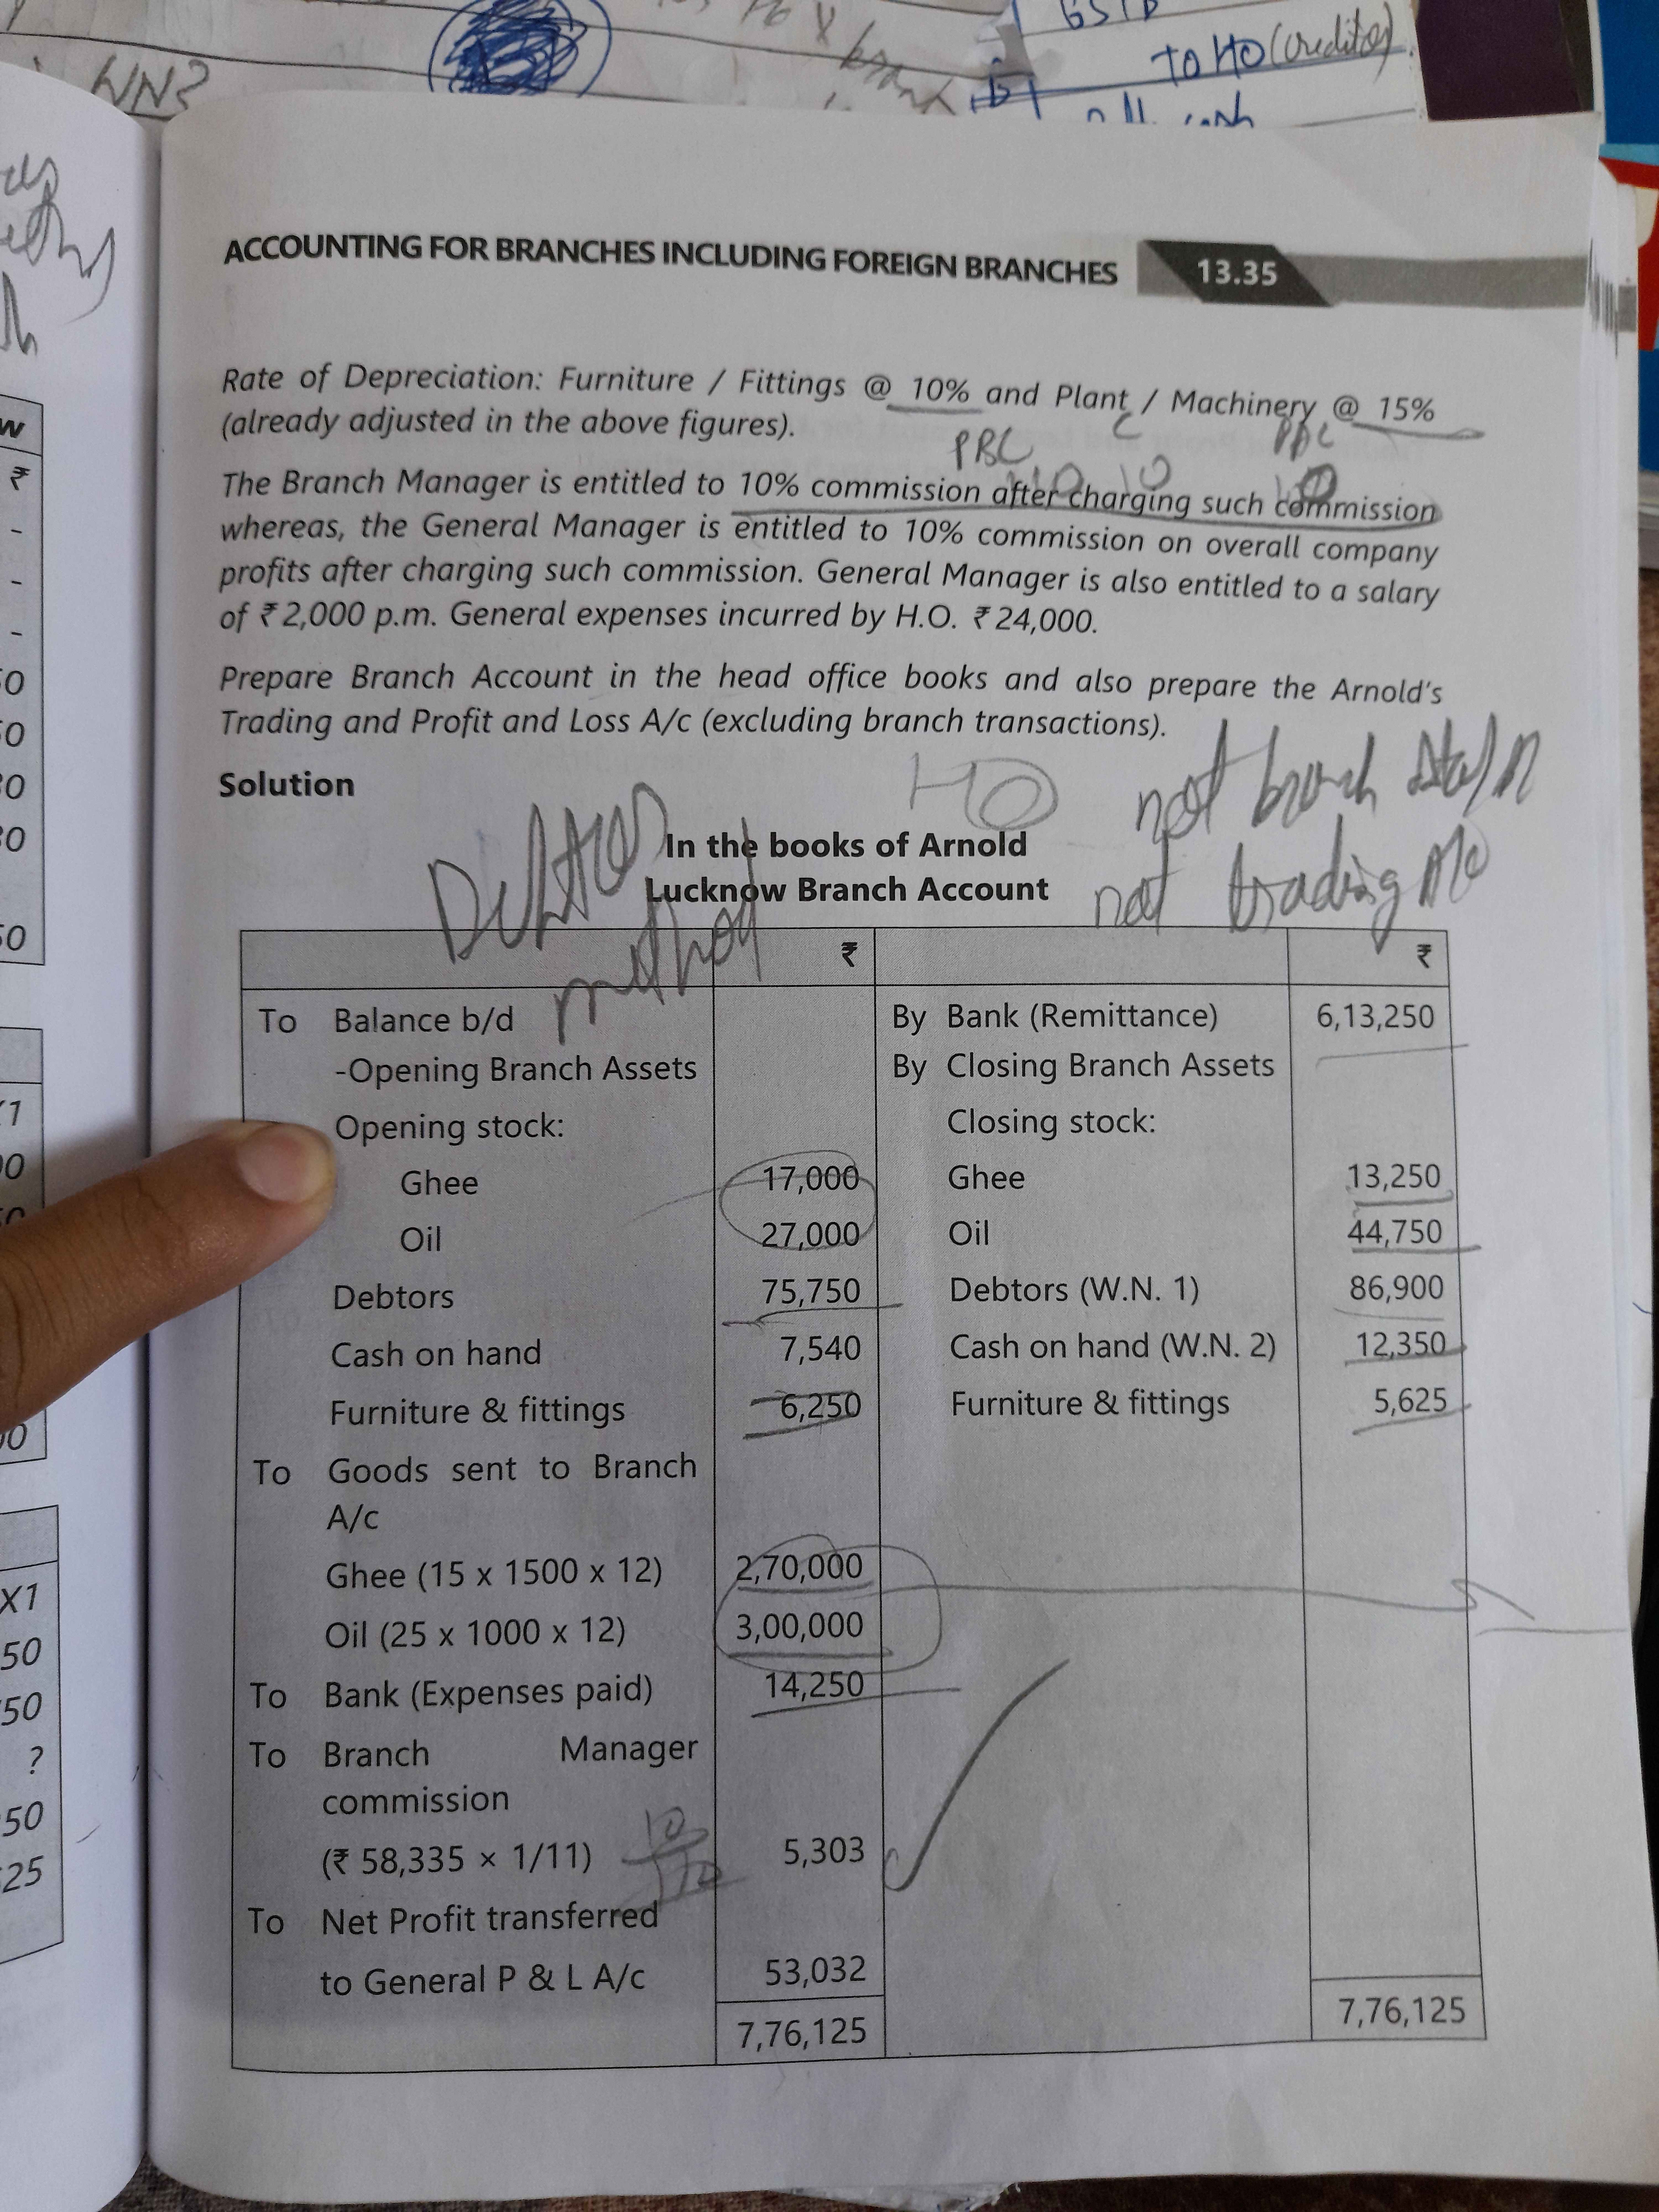 GSTB
TO HO (creditor)
WN2
branch
ACCOUNTING FOR BRANCHES INCLUDING FOREIGN BRANCHES 13.35
Rate of Depreciation: Furniture / Fittings @ 10% and Plant / Machinery @ 15%
(already adjusted in the above figures).
PBC C PAC
110 10 100
The Branch Manager is entitled to 10% commission after charging such commission
whereas, the General Manager is entitled to 10% commission on overall company
profits after charging such commission. General Manager is also entitled to a salary
of ₹ 2,000 p.m. General expenses incurred by H.O. ₹ 24,000.
Prepare Branch Account in the head office books and also prepare the Arnold's
Trading and Profit and Loss A/c (excluding branch transactions).
Solution
HO
not branch
In the books of Arnold
Lucknow Branch Account
not trading A/c
Debtors
method
₹ ₹
To Balance b/d By Bank (Remittance) 6,13,250
-Opening Branch Assets By Closing Branch Assets
Opening stock: Closing stock:
Ghee 17,000 Ghee 13,250
Oil 27,000 Oil 44,750
Debtors 75,750 Debtors (W.N. 1) 86,900
Cash on hand 7,540 Cash on hand (W.N. 2) 12,350
Furniture & fittings 6,250 Furniture & fittings 5,625
To Goods sent to Branch
A/c
Ghee (15 x 1500 x 12) 2,70,000
Oil (25 x 1000 x 12) 3,00,000
To Bank (Expenses paid) 14,250
To Branch Manager
commission
(₹ 58,335 × 1/11) 5,303
10
110
To Net Profit transferred
to General P & L A/c 53,032
7,76,125 7,76,125